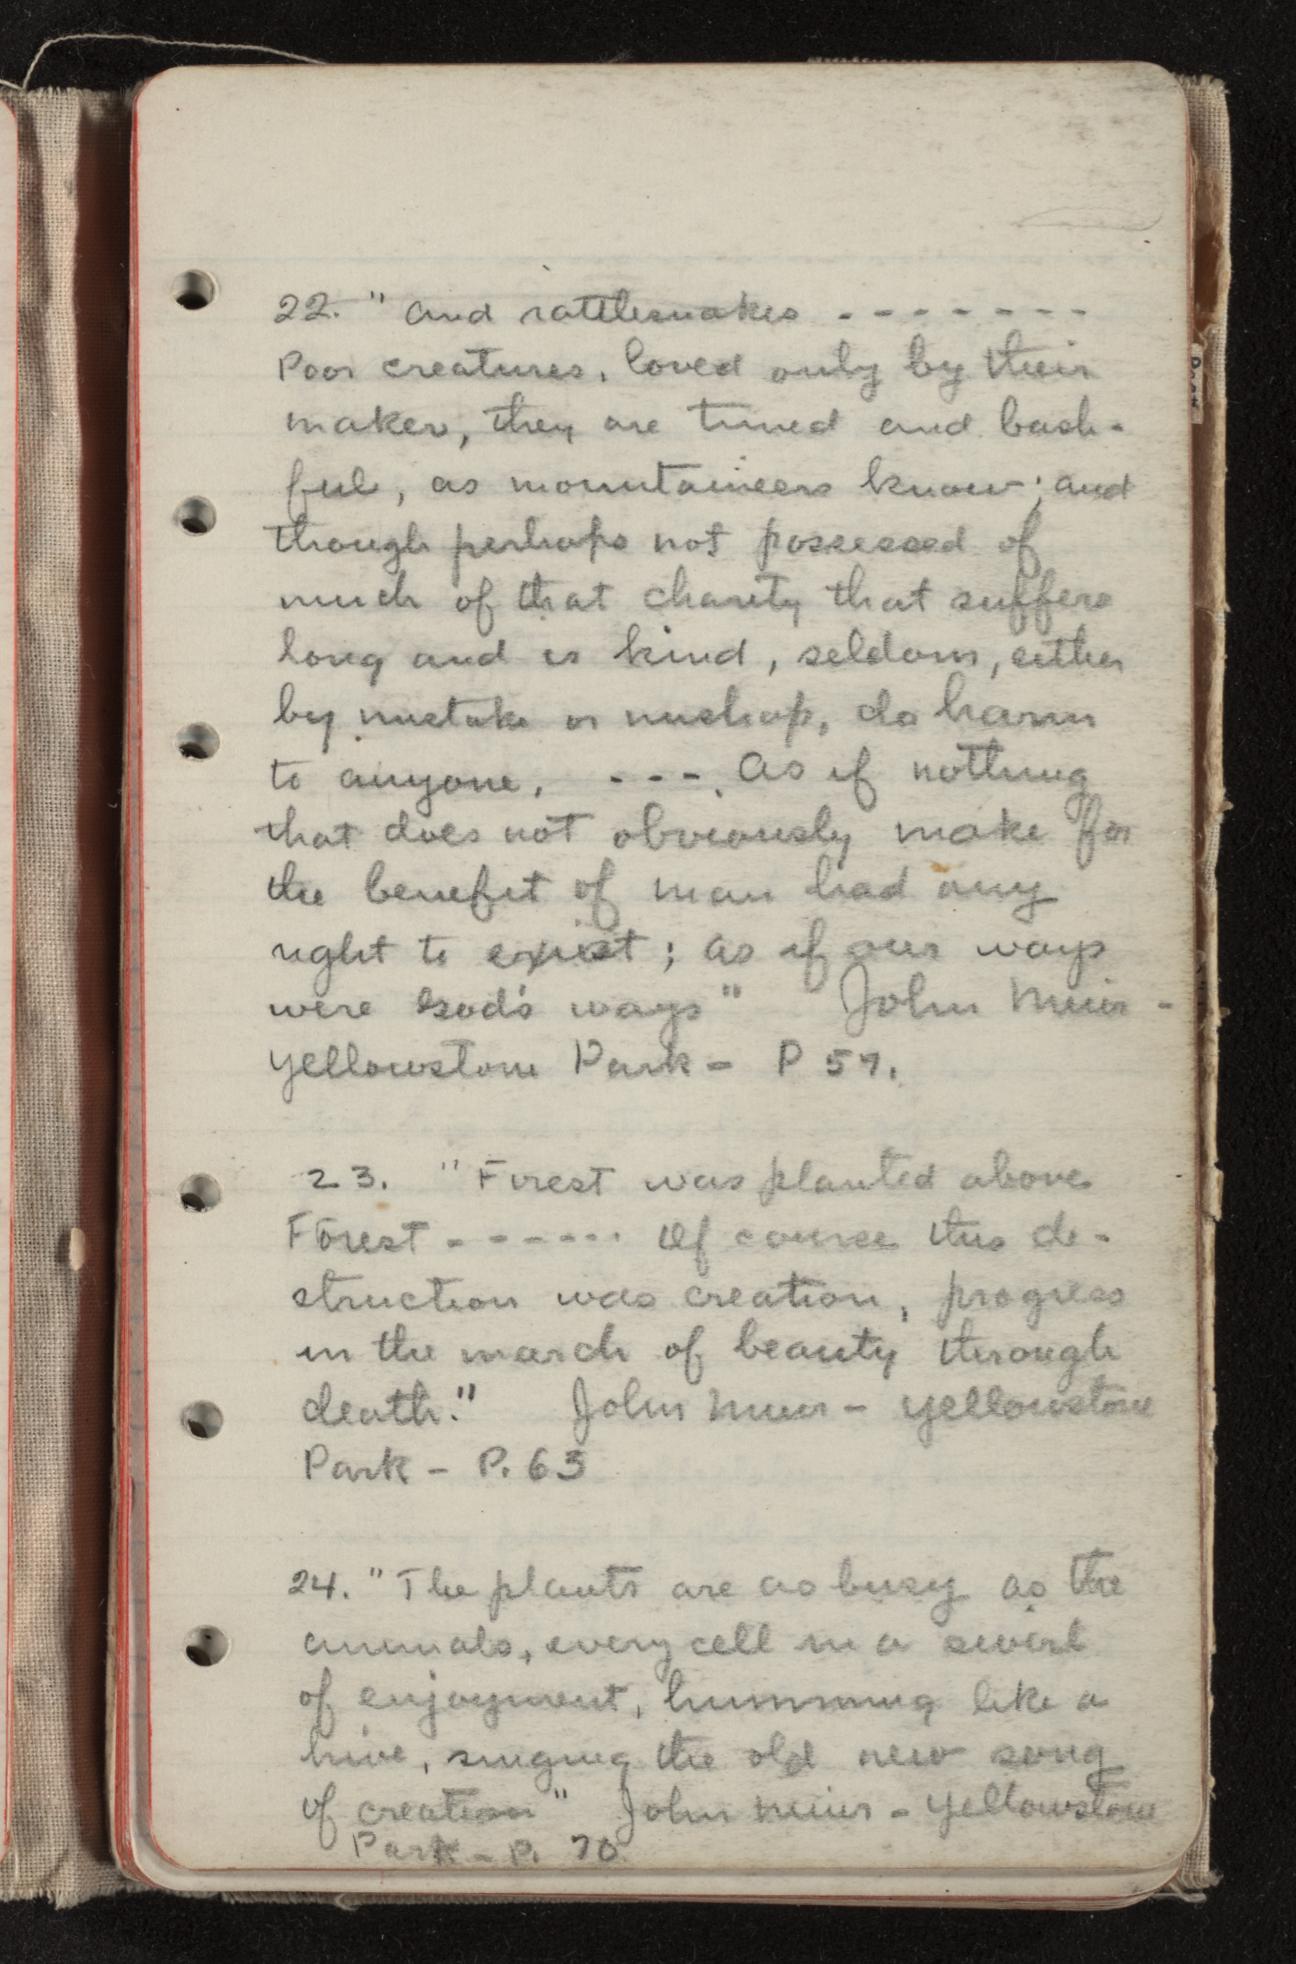 22. " and rattlesnakes - - - - - - -
Poor creatures, loved only by their
maker, they are timed and bash-
ful, as mountaineers know; and
though perhaps not possessed of
much of that charity that suffers
long and is kind, seldom, either
by mistake or mishap, do harm
to anyone, - - - . as if nothing
that does not obviously make for
the benefit of man had any
right to exist; as if our ways
were God's ways" John Muir -
Yellowstone Park - P 57.
23. "Forest was planted above
Forest - - - - - - Of course this de-
struction was creation, progress
in the march of beauty through
death." John Muir - Yellowstone
Park - P. 63
24. "The plants are as busy as the
animals, every cell in a swirl
of enjoyment, humming like a
hive, singing the old new song
of creation" John Muir - Yellowstone
Park - P. 70